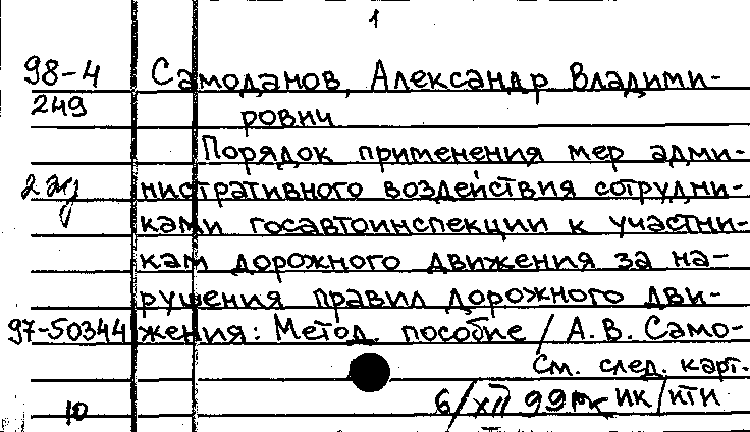 1
98-4 Самоданов, Александр Владими-
249 рович
Порядок применения мер адми-
2 нистративного воздействия сотрудни-
ками госавтоинспекции к участни-
кам дорожного движения за на-
рушения правил дорожного дви-
97-50344 жения: Метод. пособие / А.В. Само-
См. след. карт.
10 6/XII 99 ИК/КТИ